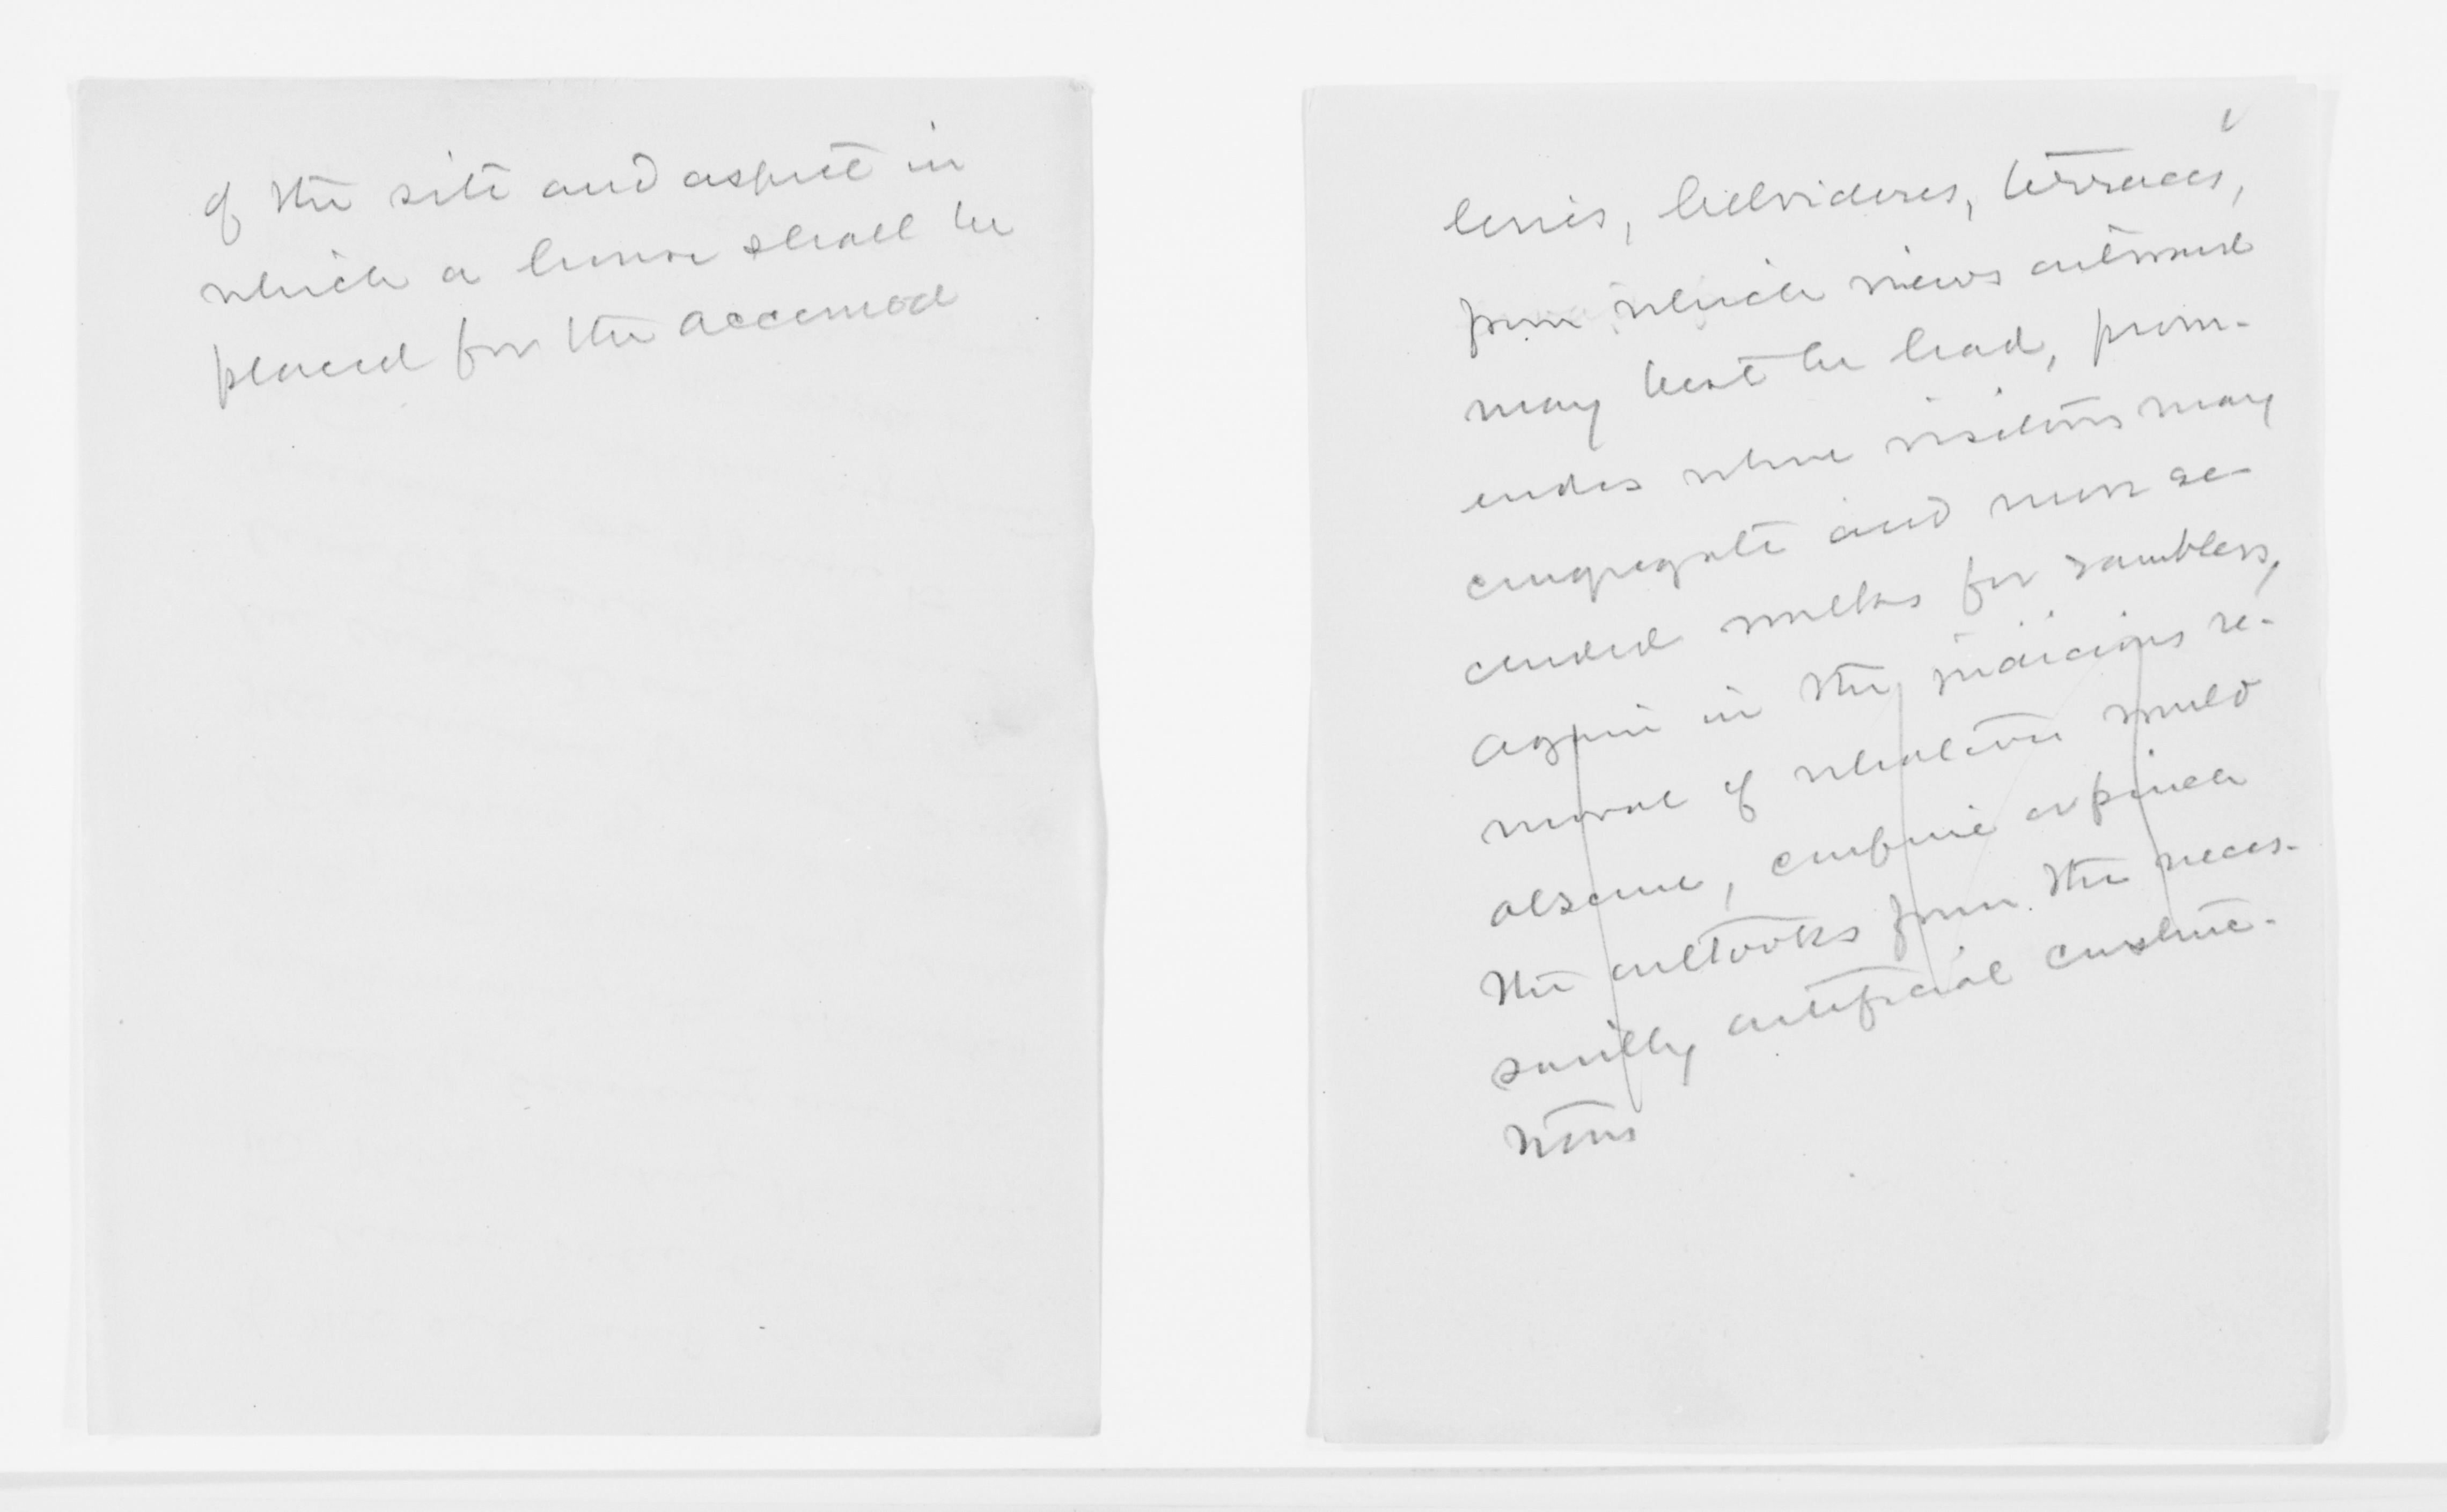 of the site and aspect in
which a house shall be
placed for the accomod
lcnies, belvideres, terraces,
from which views outward
may best be had, prom-
enades where visitors may
congregate and more se-
cluded walks for ramblers,
again in the judicious re-
moval of whatever would
obscure, confuse or pinch
the outlooks from the neces-
sarily artificial construc-
tions